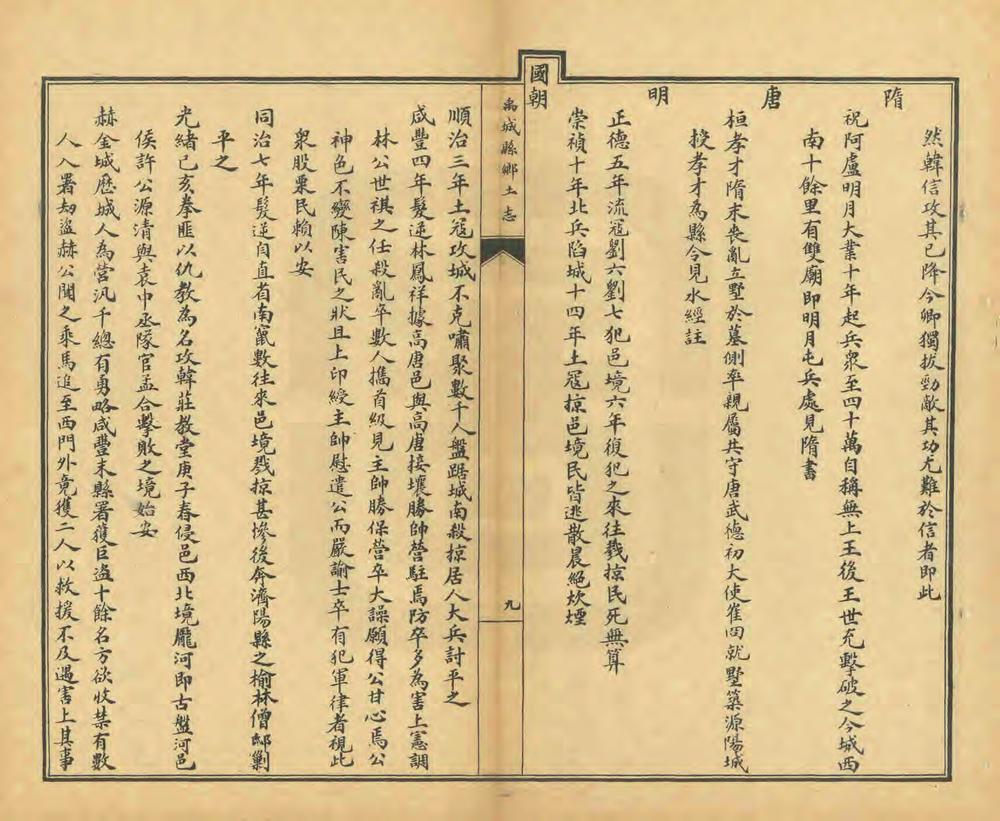 然韓信攻其已降今卿獨拔勁敵其功尤難於信者即此
隋
祝阿盧明月大業十年起兵衆至四十萬自稱無上王後王世充擊破之今城西
南十餘里有雙廟即明月屯兵處見隋書
唐
桓孝才隋末喪亂立墅於墓側率親屬共守唐武德初大使崔同就墅築源陽城
授孝才為縣令見水經註
明
正德五年流寇劉六劉七犯邑境六年復犯之來往戮掠民死無算
崇禎十年北兵陷城十四年土寇掠邑境民皆逃散晨絕炊煙
禹城縣鄉土志
九
國朝
順治三年土寇攻城不克嘯聚數千人盤踞城南殺掠居人大兵討平之
咸豐四年髮逆林鳳祥據高唐邑與高唐接壤勝帥營駐焉防卒多為害上憲調
林公世祺之任殺亂卒數人攜首級見主帥勝保營卒大譟願得公甘心焉公
神色不變陳害民之狀且上印綬主帥慰遣公而嚴諭士卒有犯軍律者視此
衆股栗民賴以安
同治七年髮逆自直省南竄數往來邑境戮掠甚慘後奔濟陽縣之榆林僧邸剿
平之
光緒己亥拳匪以仇教為名攻韓莊教堂庚子春侵邑西北境龎河即古盤河邑
侯許公源清與袁中丞隊官孟合擊敗之境始安
赫金城歷城人為營汛千總有勇略咸豐末縣署獲巨盜十餘名方欲收禁有數
人入署劫盜赫公聞之乘馬追至西門外竟獲二人以救援不及遇害上其事